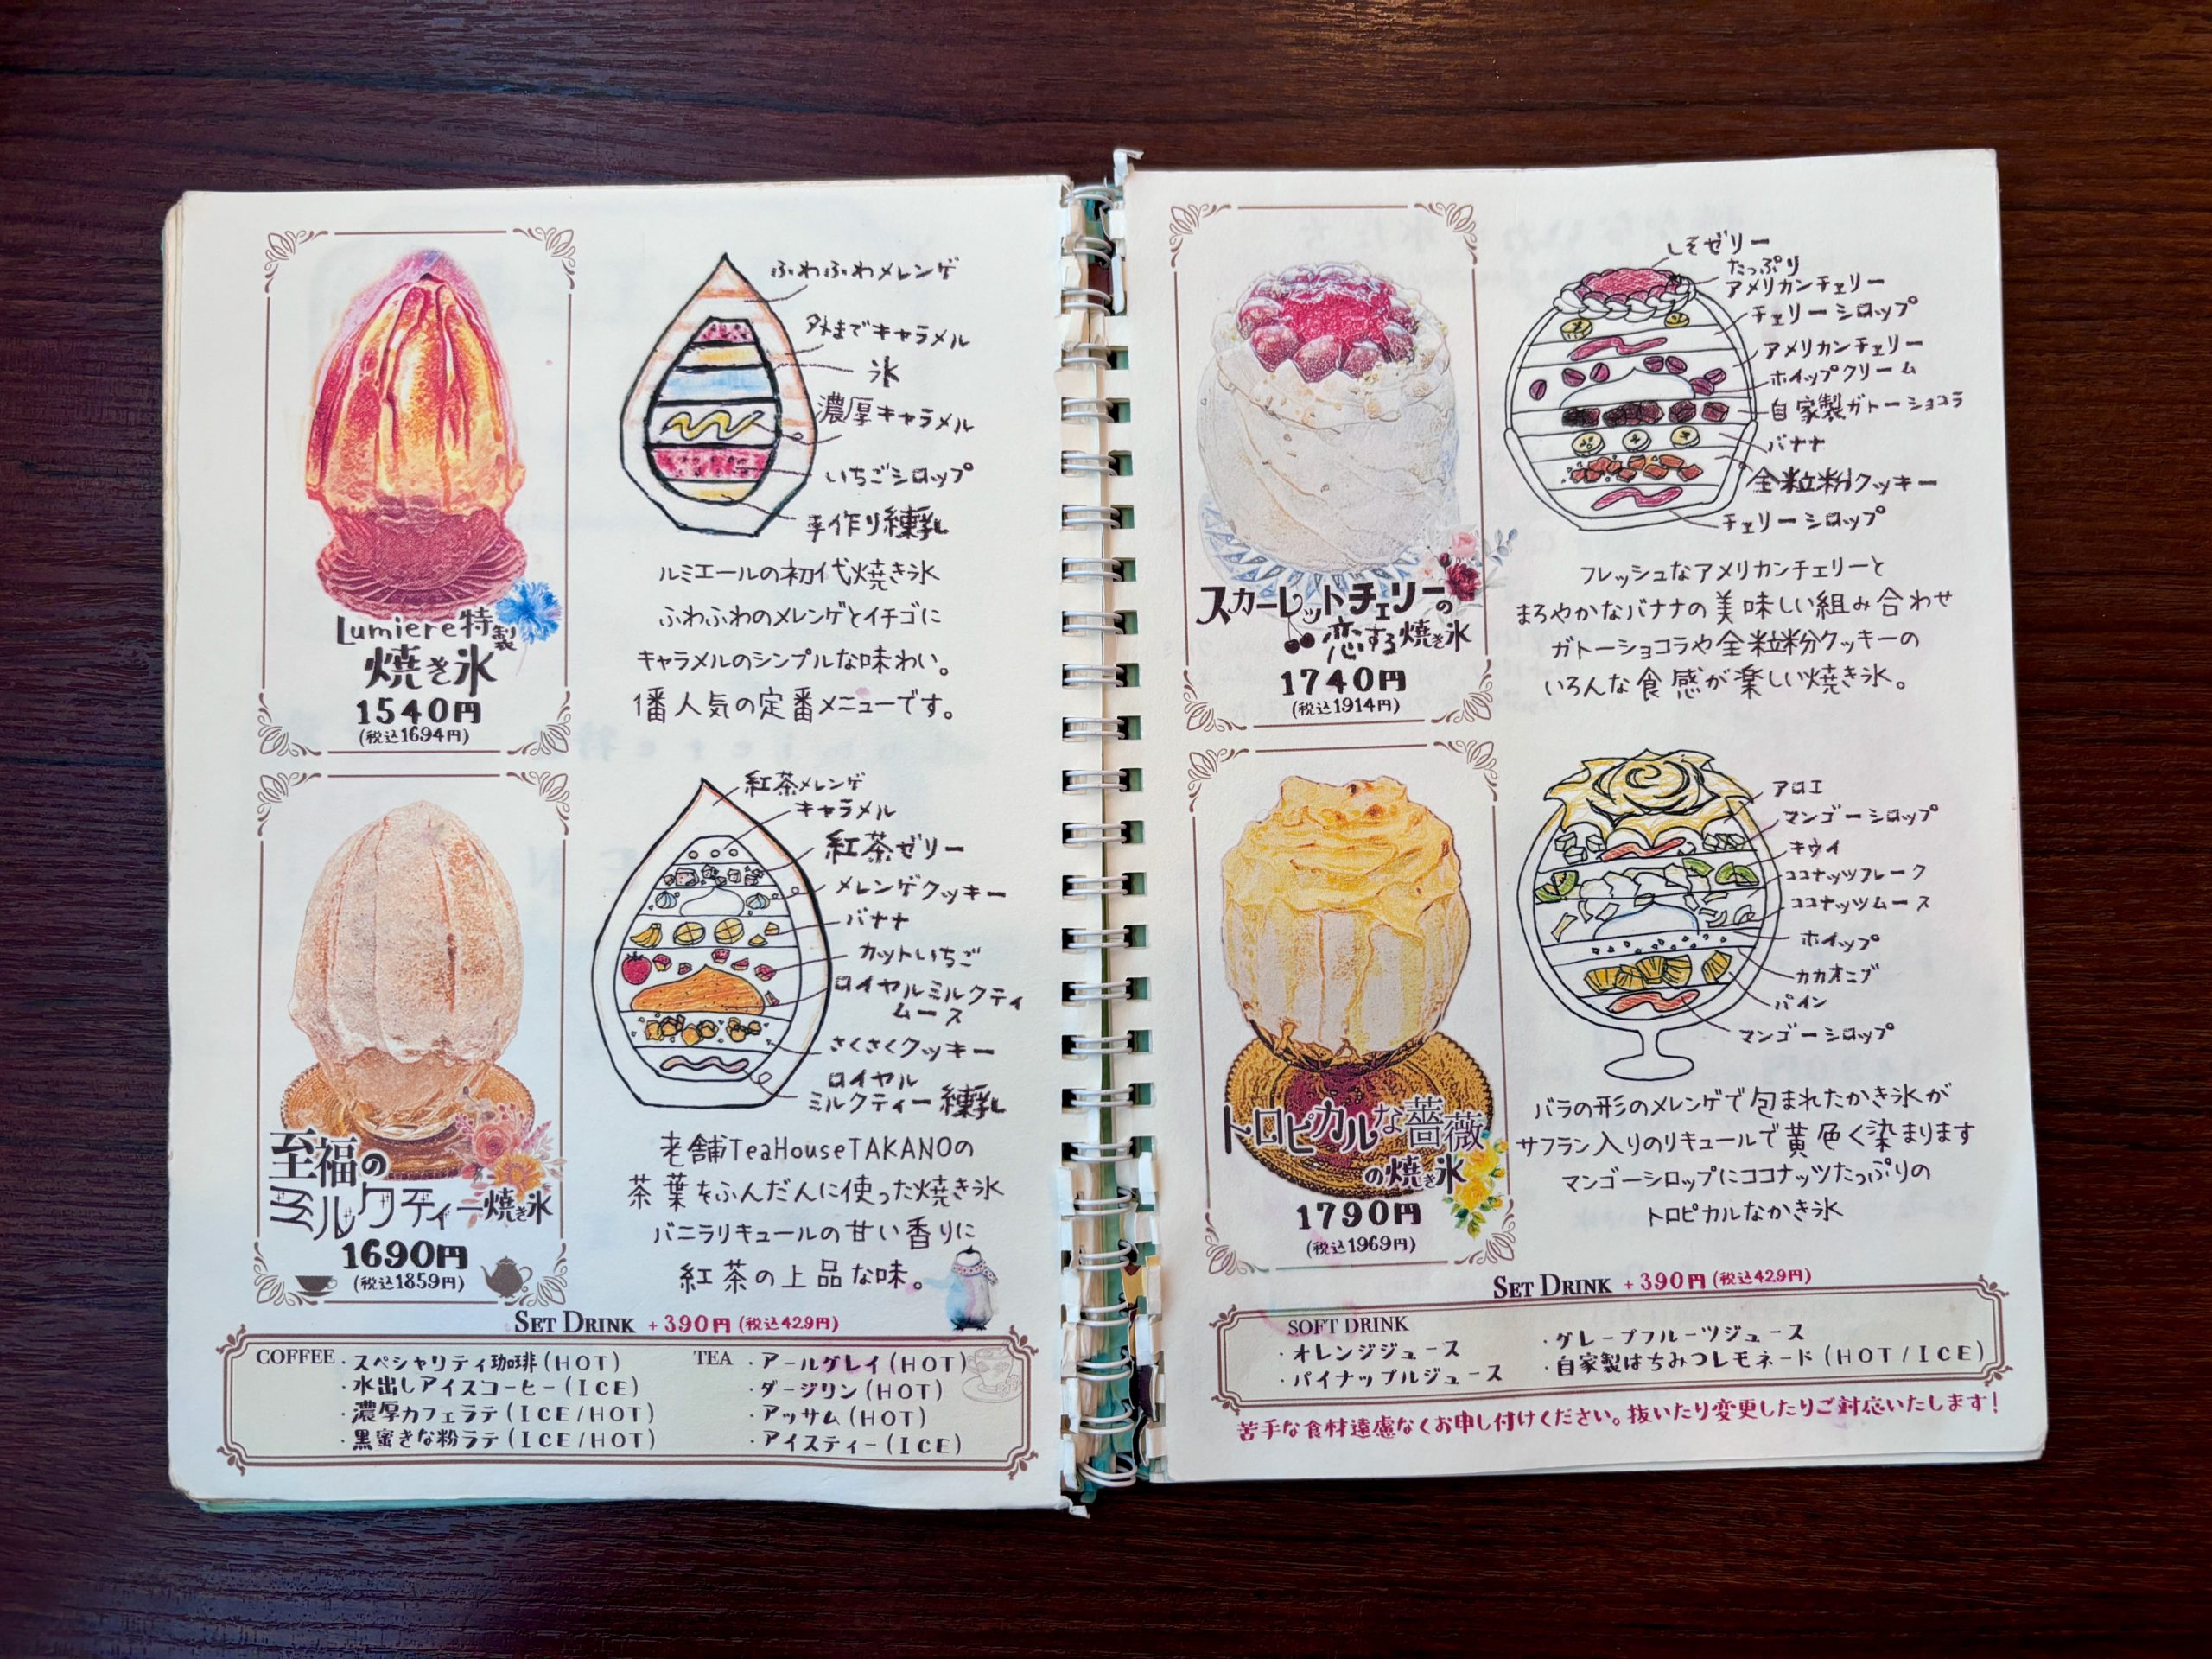 ふわふわメレンゲ
外までキャラメル
氷
濃厚キャラメル
いちごシロップ
手作り練乳
Lumiere特製
焼き氷
1540円
(税込1694円)
ルミエールの初代焼き氷
ふわふわのメレンゲとイチゴに
キャラメルのシンプルな味わい。
1番人気の定番メニューです。
紅茶メレンゲ
キャラメル
紅茶ゼリー
メレンゲクッキー
バナナ
カットいちご
ロイヤルミルクティ
ムース
さくさくクッキー
ロイヤル
ミルクティー練乳
至福の
ミルクティー焼き氷
1690円
(税込1859円)
老舗TeaHouseTAKANOの
茶葉をふんだんに使った焼き氷
バニラリキュールの甘い香りに
紅茶の上品な味。
SET DRINK +390円(税込429円)
COFFEE
・スペシャリティ珈琲(HOT)
・水出しアイスコーヒー(ICE)
・濃厚カフェラテ(ICE/HOT)
・黒蜜きな粉ラテ(ICE/HOT)
TEA
・アールグレイ(HOT)
・ダージリン(HOT)
・アッサム(HOT)
・アイスティー(ICE)
しそゼリー
たっぷり
アメリカンチェリー
チェリーシロップ
アメリカンチェリー
ホイップクリーム
自家製ガトーショコラ
バナナ
全粒粉クッキー
チェリーシロップ
スカーレットチェリーの
恋する焼き氷
1740円
(税込1914円)
フレッシュなアメリカンチェリーと
まろやかなバナナの美味しい組み合わせ
ガトーショコラや全粒粉クッキーの
いろんな食感が楽しい焼き氷。
アロエ
マンゴーシロップ
キウイ
ココナッツフレーク
ココナッツムース
ホイップ
カカオニブ
パイン
マンゴーシロップ
トロピカルな薔薇
の焼き氷
1790円
(税込1969円)
バラの形のメレンゲで包まれたかき氷が
サフラン入りのリキュールで黄色く染まります
マンゴーシロップにココナッツたっぷりの
トロピカルなかき氷
SET DRINK +390円(税込429円)
SOFT DRINK
・オレンジジュース
・パイナップルジュース
・グレープフルーツジュース
・自家製はちみつレモネード(HOT/ICE)
苦手な食材遠慮なくお申し付けください。抜いたり変更したりご対応いたします!